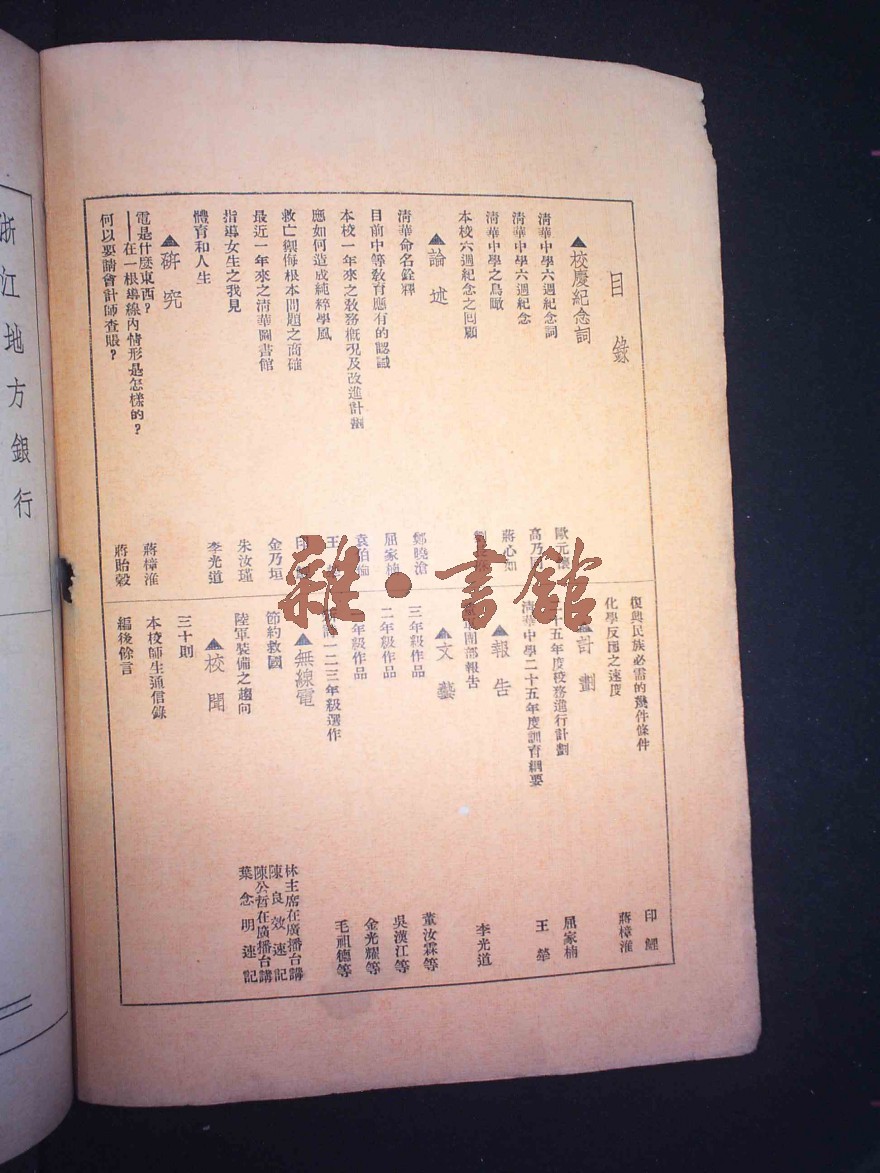 目錄
▲校慶紀念詞
清華中學六週紀念詞 歐元懷
清華中學六週紀念 高乃同
清華中學之鳥瞰 蔣心如
本校六週紀念之回顧
▲論述
清華命名銓釋 鄭曉滄
目前中等教育應有的認識 屈家楠
本校一年來之教務概況及改進計劃 袁伯倫
應如何造成純粹學風 王
救亡禦侮根本問題之商確 印
最近一年來之清華圖書館 金乃垣
指導女生之我見 朱汝瑾
體育和人生 李光道
▲研究
電是什麽東西?
——在一根導線內情形是怎樣的? 蔣樟滙
何以要請會計師查賬? 蔣貽穀
復興民族必需的幾件條件 印鯉
化學反應之速度 蔣樟滙
計劃
二十五年度校務進行計劃 屈家楠
清華中學二十五年度訓育綱要 王犖
▲報告
團部報告 李光道
▲文藝
三年級作品 董汝霖等
二年級作品 吳漢江等
一年級作品 金光耀等
一二三年級選作 毛祖德等
▲無線電
節約救國 林主席在廣播台講
陳良效速記
陸軍裝備之趨向 陳公哲在廣播台講
葉念明速記
▲校聞
三十則
本校師生通信錄
編後餘言
浙江地方銀行
雜·書館